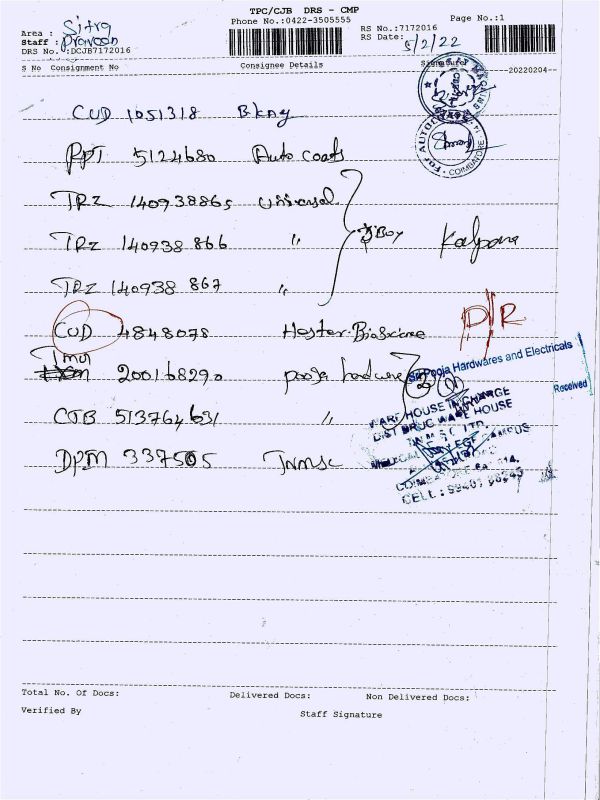 TPC/CJB DRS - CMP
Phone No.:0422-3505555
Page No.:1
Area : Sitra
Staff : Praveen
DRS No. :DCJB7172016
RS No.:7172016
RS Date: 5/2/22
S No Consignment No Consignee Details Signature
20220204
CUD 1051318
PPT 5124680 Auto coats
TRZ 140938865 Universal
TRZ 140938 866 "
TRZ 140938 867 "
Box
Kalpana
CUD 4848078 Hester Bioscience
D/R
200168290 pooja hardware
Sri Pooja Hardwares and Electricals
Received
CJB 513764631 "
DPM 337505 Tnmsc
WARE HOUSE IN CHARGE
DIST DRUG WARE HOUSE
T.N.M.S.C. LTD.
MEDICAL COLLEGE CAMPUS
CELL :
FOR AUTOCOATS
COIMBATORE
Total No. Of Docs: Delivered Docs: Non Delivered Docs:
Verified By Staff Signature